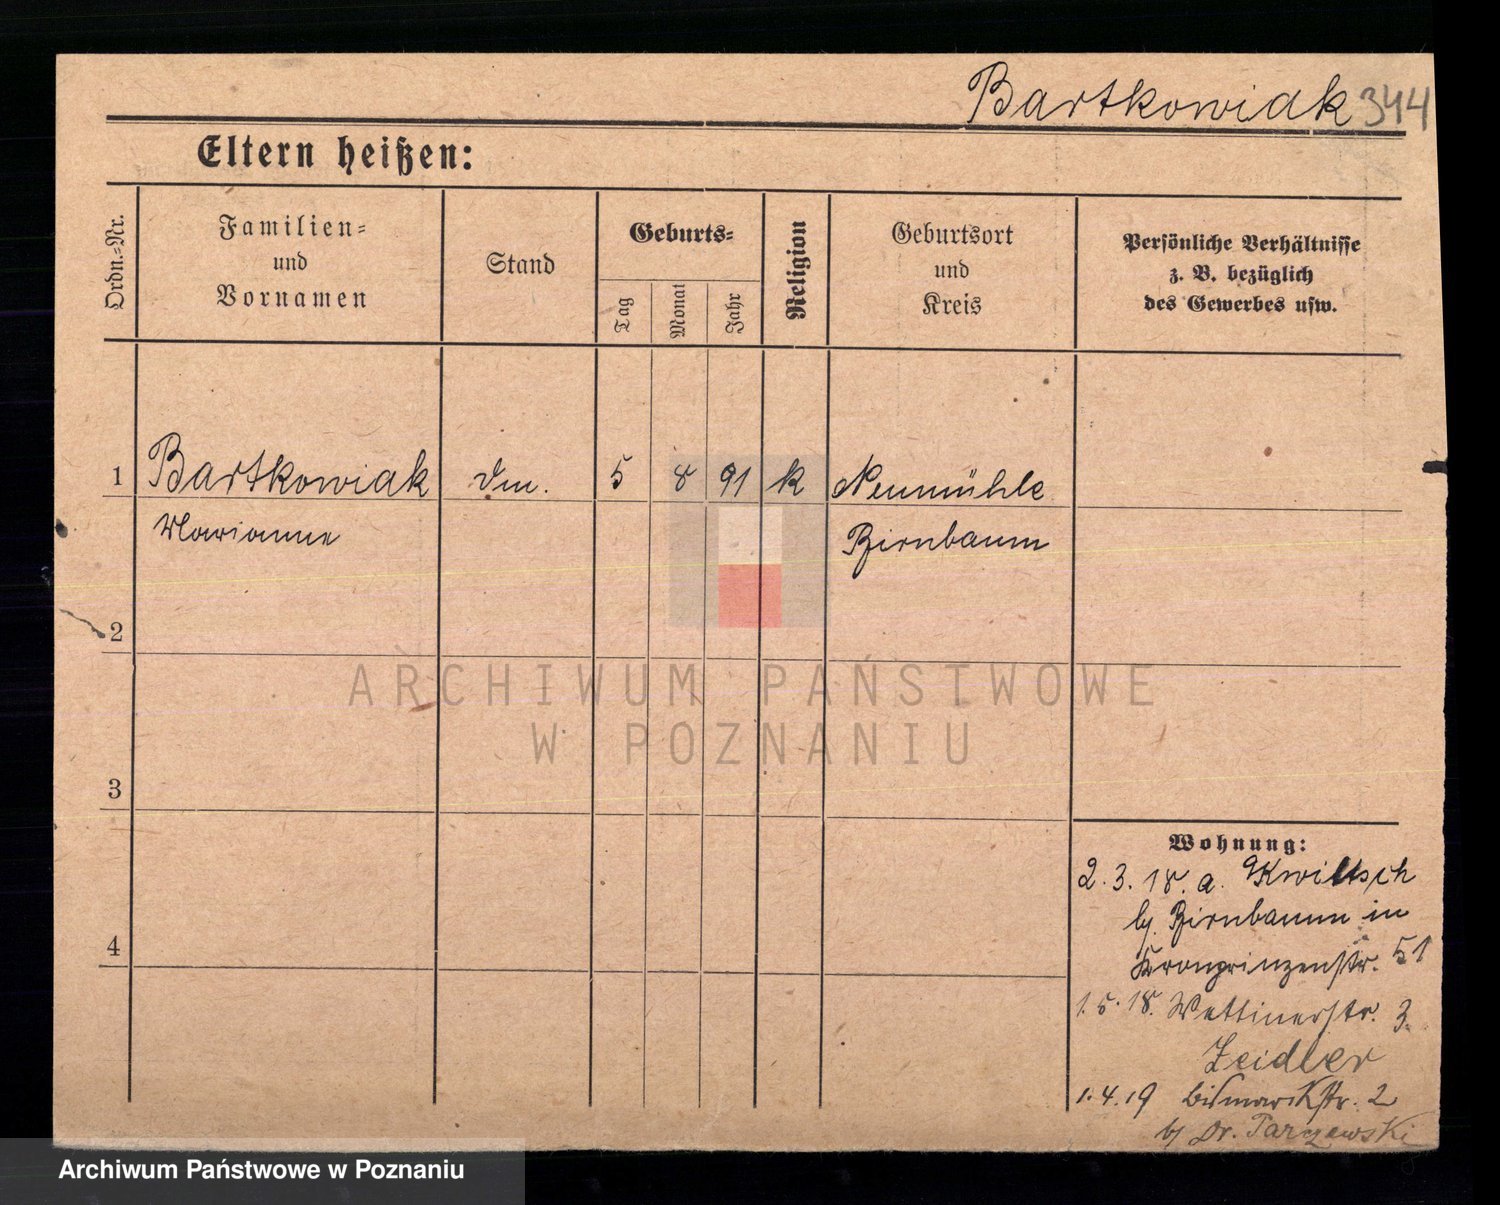 Bartkowiak 344
Eltern heißen:
Ordn.=Nr.
Familien=
und
Vornamen
Stand
Geburts=
Tag
Monat
Jahr
Religion
Geburtsort
und
Kreis
Persönliche Verhältnisse
z. B. bezüglich
des Gewerbes usw.
1 Bartkowiak Dm. 5 8 91 k Neumühle
Marianne Birnbaum
2
3
4
ARCHIWUM PAŃSTWOWE
W POZNANIU
Wohnung:
2.3.18. a. Kwiltsch
b/ Birnbaum in
Kronprinzenstr. 51
1.5.18. Wettinerstr. 3
Zeidler
1.4.19 Bismarckstr. 2
b/ Dr. Tarczewski
Archiwum Państwowe w Poznaniu